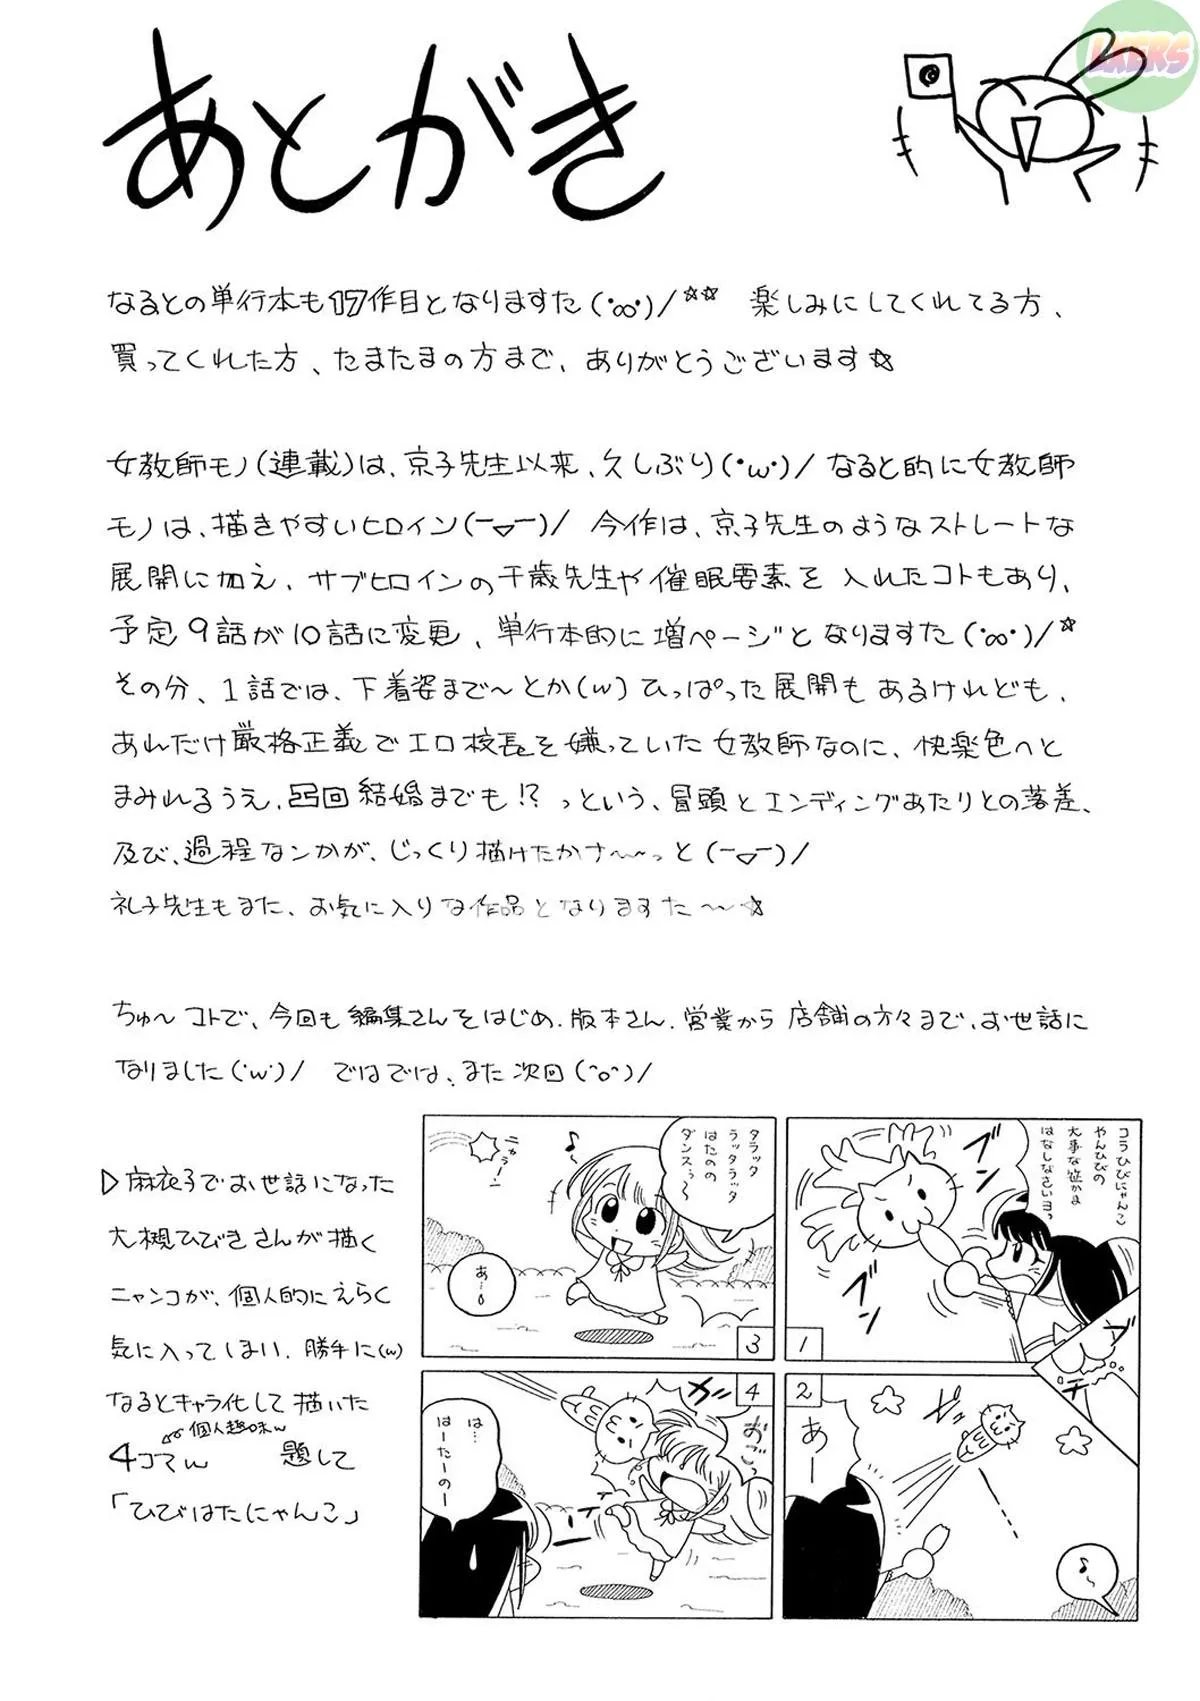 あとがき
LXERS
なるとの単行本も17作目となりますた(・∞・)/☆☆ 楽しみにしてくれてる方、
買ってくれた方、たまたまの方まで、ありがとうございます☆
女教師モノ(連載)は、京子先生以来、久しぶり(・ω・)/ なると的に女教師
モノは、描きやすいヒロイン(ー▽ー)/ 今作は、京子先生のようなストレートな
展開に加え、サブヒロインの千歳先生や催眠要素を入れたコトもあり、
予定9話が10話に変更、単行本的に増ページとなりますた(・∞・)/☆
その分、1話では、下着姿まで〜とか(w)ひっぱった展開もあるけれども、
あれだけ厳格正義でエロ校長を嫌っていた女教師なのに、快楽色へと
まみれるうえ、凸凹結婚までも!? っという、冒頭とエンディングあたりとの落差、
及び、過程なんかが、じっくり描けたかナ〜〜っと(ー▽ー)/
礼子先生もまた、お気に入りな作品となりますた〜☆
ちゅ〜コトで、今回も編集さんをはじめ、版本さん、営業から店舗の方々まで、お世話に
なりました(・w・)/ ではでは、また次回(^o^)/
▷麻衣子でお世話になった
大槻ひびきさんが描く
ニャンコが、個人的にえらく
気に入ってしまい、勝手に(w)
なるとキャラ化して描いた
個人趣味w
4コマw 題して
「ひびはたにゃんこ」
コラひびにゃんこ
やんひびの
大事な笹かま
はなしなさいヨっ
ブン
ブン
1
あー
♪〜
2
タラック
ラッタラッタ
はたのの
ダンスぅ〜
♪
ニャうー!
あ…
3
ガッ
おごっ
は…
はーたーのー
4